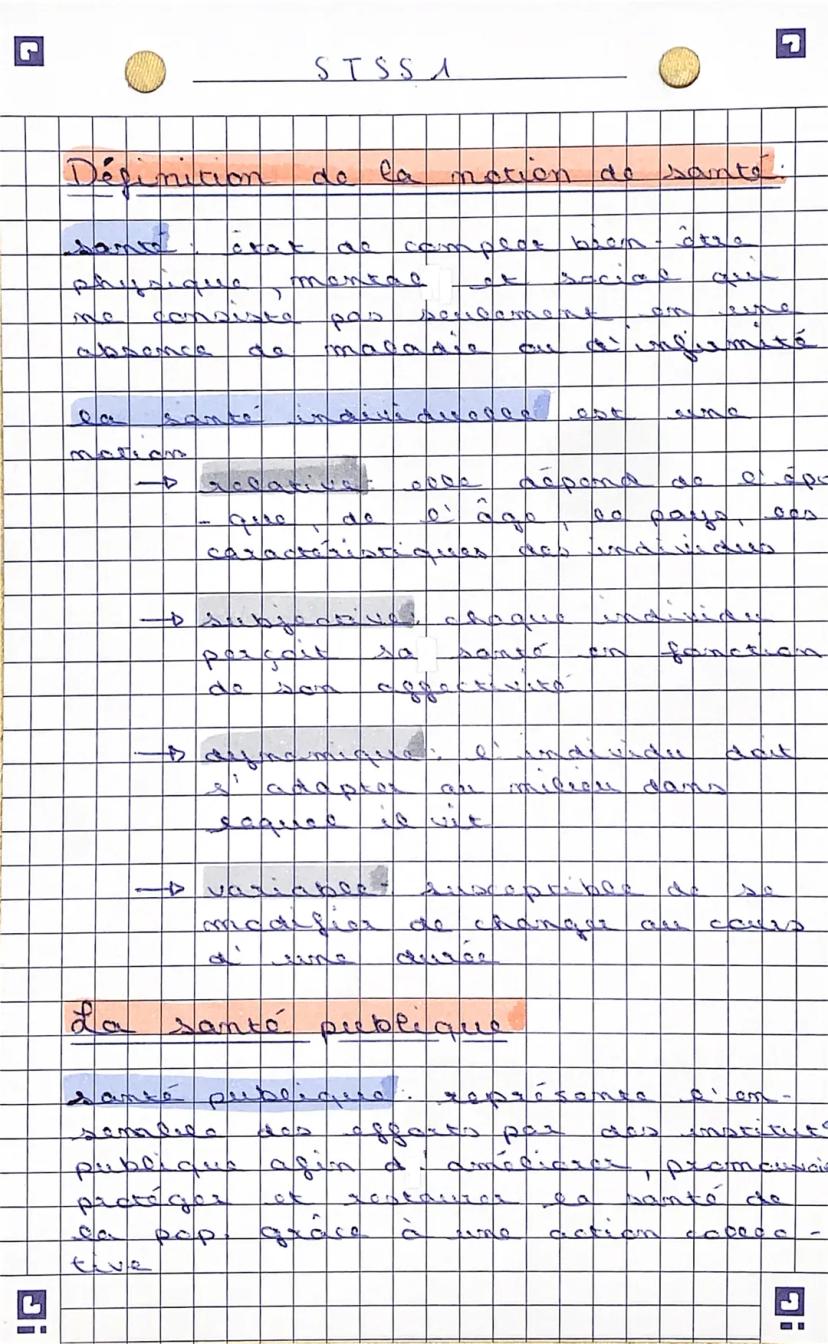 STSS 1
Définition de la notion de santé.
santé : état de complet bien-être
physique, mental et social qui
ne consiste pas seulement en une
absence de maladie ou d'infirmité
la santé individuelle est une
notion
→ relative : elle dépend de l'épo
- que, de l'âge, le pays, les
caractéristiques des individus
→ subjective : chaque individu
perçoit sa santé en fonction
de son affectivité
→ dynamique : l'individu doit
s'adapter au milieu dans
lequel il vit
→ variable : susceptible de se
modifier de changer au cours
d'une durée
La santé publique
santé publique : représente l'en-
semble des efforts par des institut
publique afin d'améliorer, promouvoir
protéger et restaurer la santé de
la pop. grâce à une action collec -
tive